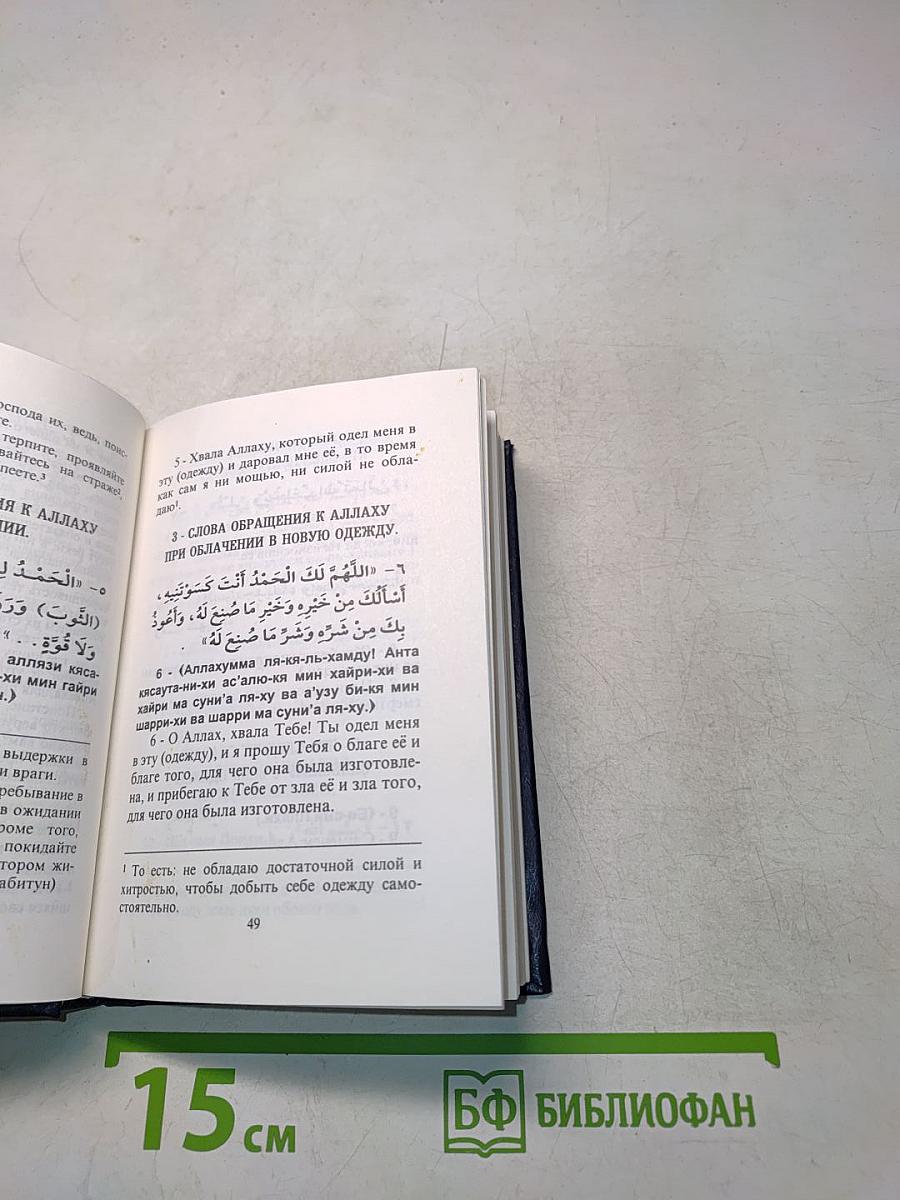 оспода их, ведь, поис-
те.
терпите, проявляйте
вайтесь на страже²,
пеете.³
ИЯ К АЛЛАХУ
НИИ.
٥- «الْحَمْدُ لِ
(الثَّوبَ) وَرَزَ
وَلَا قُوَّةٍ . . »
аллязи кяса-
-хи мин гайри
н.)
выдержки в
и враги.
ребывание в
в ожидании
роме того,
покидайте
тором жи-
абитун)
5 - Хвала Аллаху, который одел меня в
эту (одежду) и даровал мне её, в то время
как сам я ни мощью, ни силой не обла-
даю¹.
3 - СЛОВА ОБРАЩЕНИЯ К АЛЛАХУ
ПРИ ОБЛАЧЕНИИ В НОВУЮ ОДЕЖДУ.
٦- «اللَّهُمَّ لَكَ الْحَمْدُ أَنْتَ كَسَوْتَنِيهِ،
أَسْأَلُكَ مِنْ خَيْرِهِ وَخَيْرِ مَا صُنِعَ لَهُ، وَأَعُوذُ
بِكَ مِنْ شَرِّهِ وَشَرِّ مَا صُنِعَ لَهُ» .
6 - (Аллахумма ля-кя-ль-хамду! Анта
кясаута-ни-хи ас'алю-кя мин хайри-хи ва
хайри ма суни'а ля-ху ва а'узу би-кя мин
шарри-хи ва шарри ма суни'а ля-ху.)
6 - О Аллах, хвала Тебе! Ты одел меня
в эту (одежду), и я прошу Тебя о благе её и
благе того, для чего она была изготовле-
на, и прибегаю к Тебе от зла её и зла того,
для чего она была изготовлена.
¹ То есть: не обладаю достаточной силой и
хитростью, чтобы добыть себе одежду само-
стоятельно.
49
15 см
БФ БИБЛИОФАН